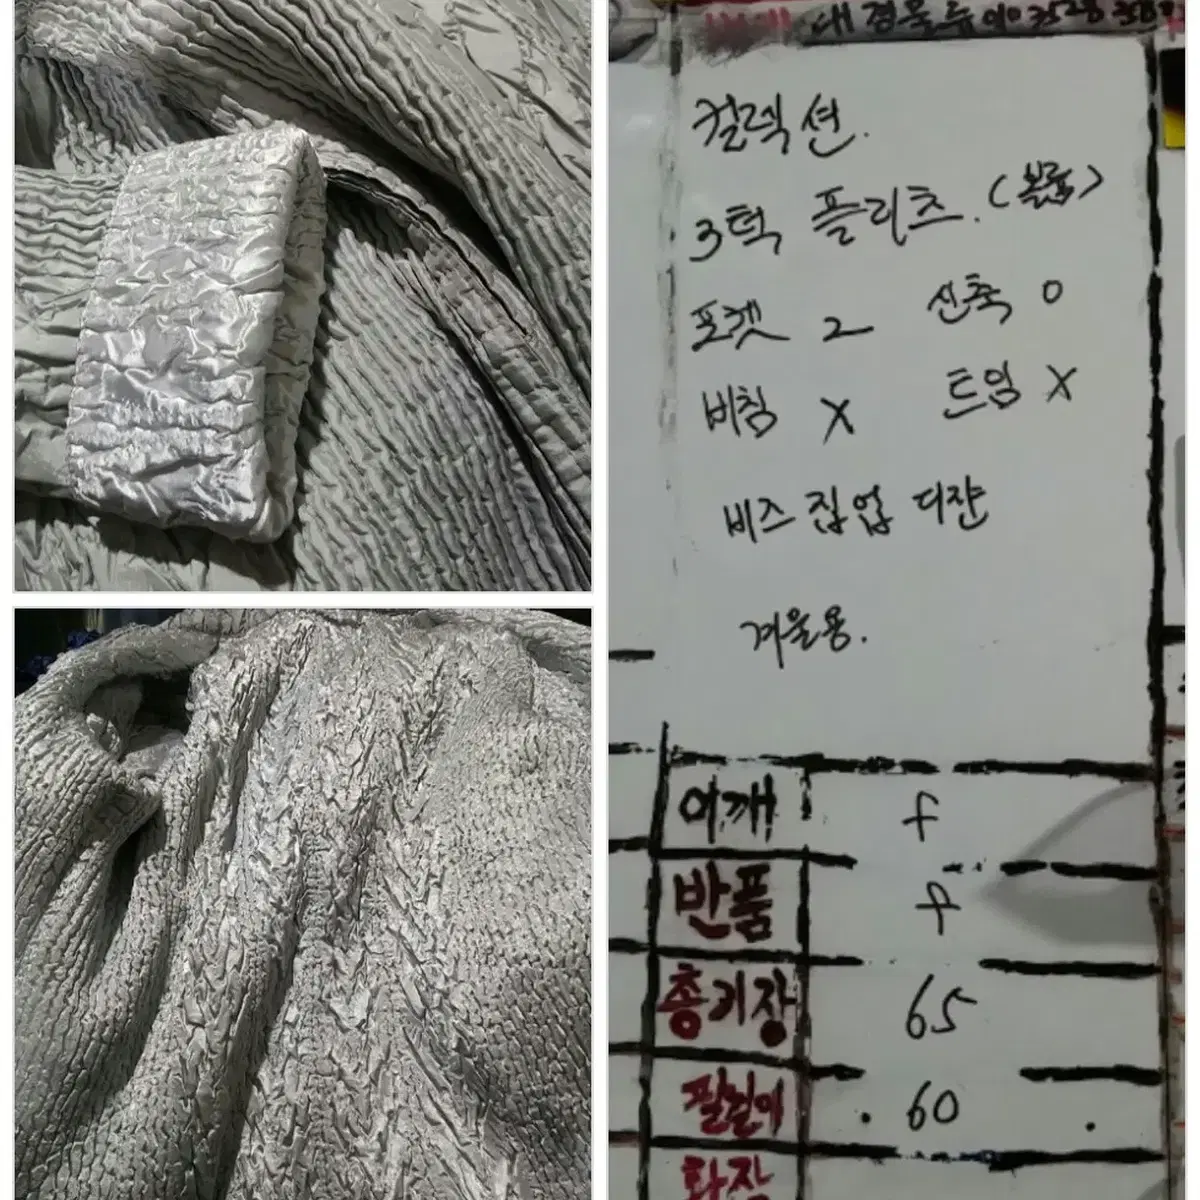 컬렉션.
3턱 플리츠. (볼륨)
포켓 2 신축 O
비침 X 트임 X
비즈 집업 디쟌
겨울용.
어깨 f
반품 f
총기장 65
팔길이 60
화장